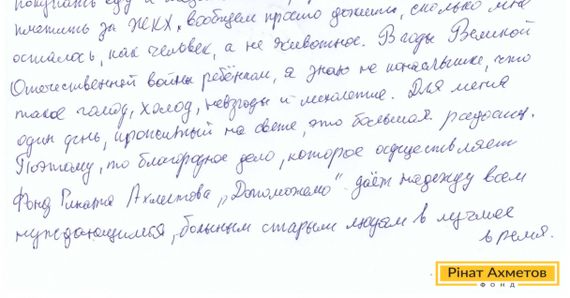 покупать еду и
платить за ЖКХ, вообщем просто дожить, сколько мне
осталось, как человек, а не животное. В годы Великой
Отечественной войны ребёнком, я знаю не понаслышке, что
такое голод, холод, невзгоды и лихолетие. Для меня
один день, прожитый на свете, это большая радость.
Поэтому, то благородное дело, которое осуществляет
Фонд Рината Ахметова „Допоможемо" даёт надежду всем
нуждающимся, больным старым людям в лучшее
время.
Рінат Ахметов
ФОНД